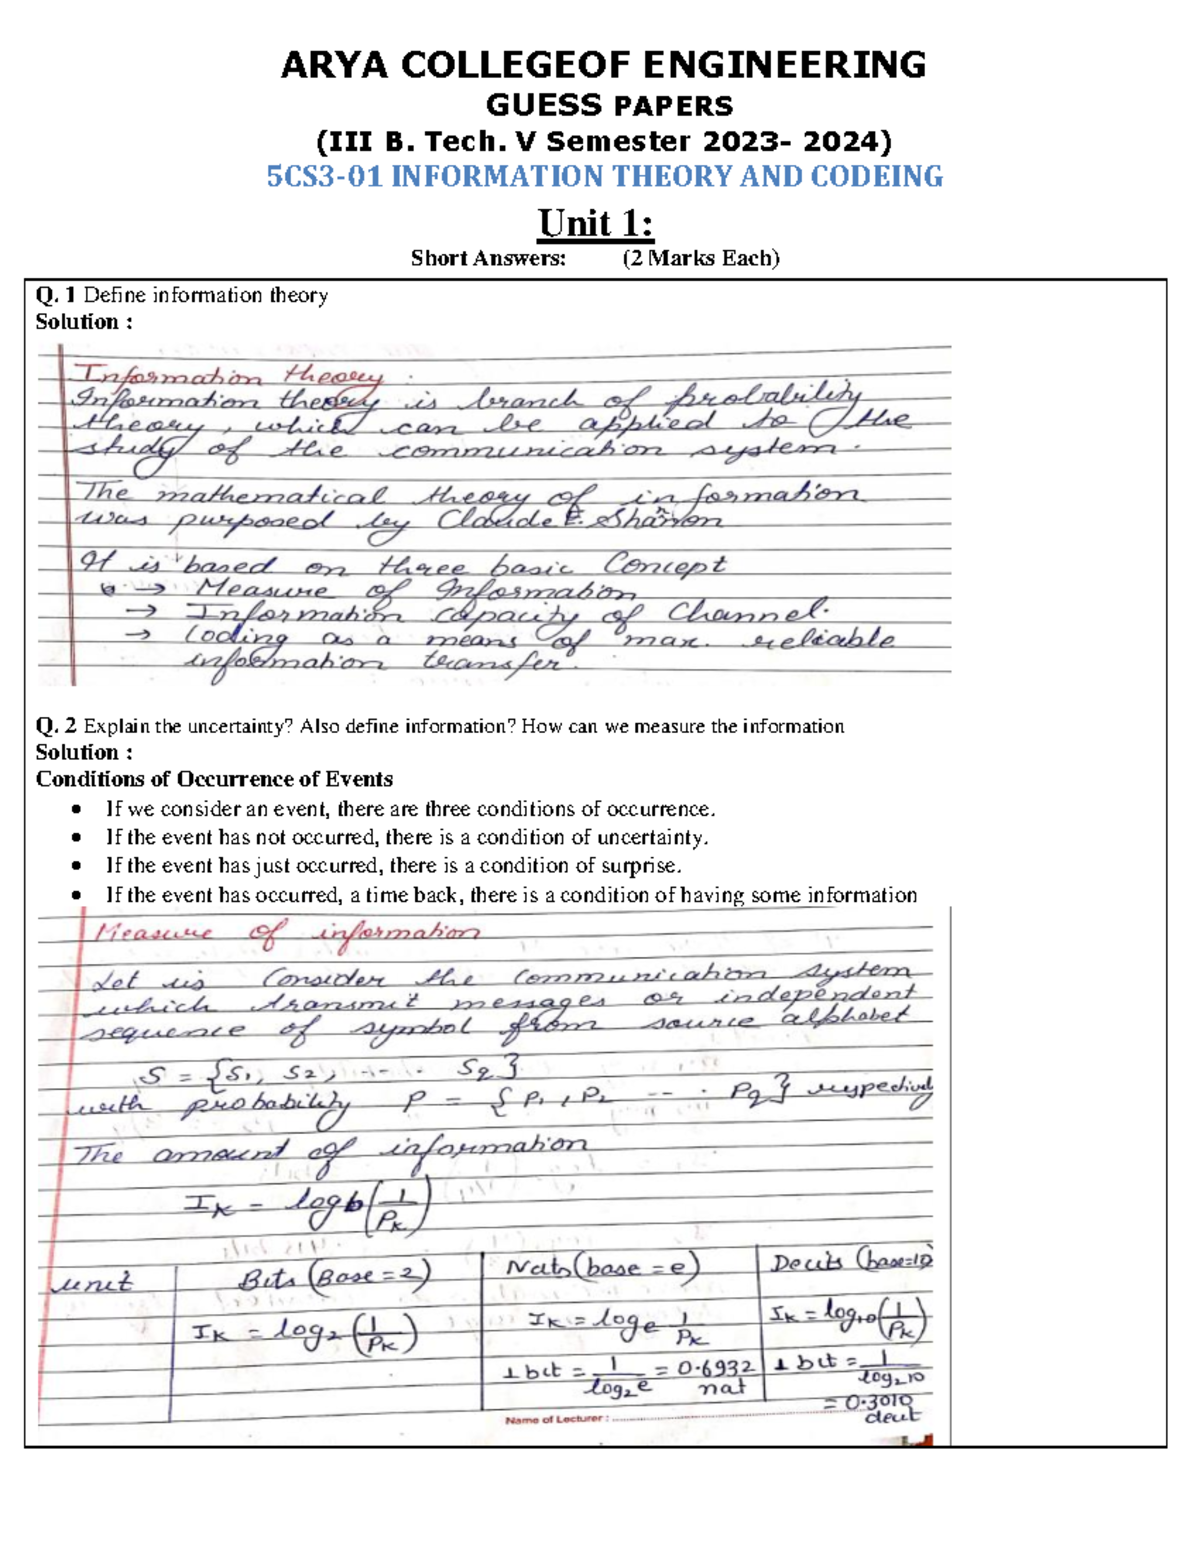 ARYA COLLEGEOF ENGINEERING
GUESS PAPERS
(III B. Tech. V Semester 2023- 2024)
5CS3-01 INFORMATION THEORY AND CODEING
Unit 1:
Short Answers: (2 Marks Each)
Q. 1 Define information theory
Solution :
Information theory :
Information theory is branch of probability
theory, which can be applied to the
study of the communication system.
The mathematical theory of information
was purposed by Claude E. Shannon
It is based on three basic Concept
→ Measure of Information
→ Information capacity of Channel.
→ Coding as a means of max. reliable
information transfer.
Q. 2 Explain the uncertainty? Also define information? How can we measure the information
Solution :
Conditions of Occurrence of Events
• If we consider an event, there are three conditions of occurrence.
• If the event has not occurred, there is a condition of uncertainty.
• If the event has just occurred, there is a condition of surprise.
• If the event has occurred, a time back, there is a condition of having some information
Measure of information
Let us Consider the Communication system
which transmit messages or independent
sequence of symbol from source alphabet
S = {S1, S2, ---- . Sq}
with probability P = {P1, P2 -- . Pq} respectively
The amount of information
IK = logb(1/PK)
unit Bits (Base = 2) Nats (base = e) Decits (base=10)
IK = log2 (1/PK) IK = loge 1/PK IK = log10(1/PK)
1 bit = 1/log2e = 0.6932 nat 1 bit = 1/log210
= 0.3010 decit
Name of Lecturer :